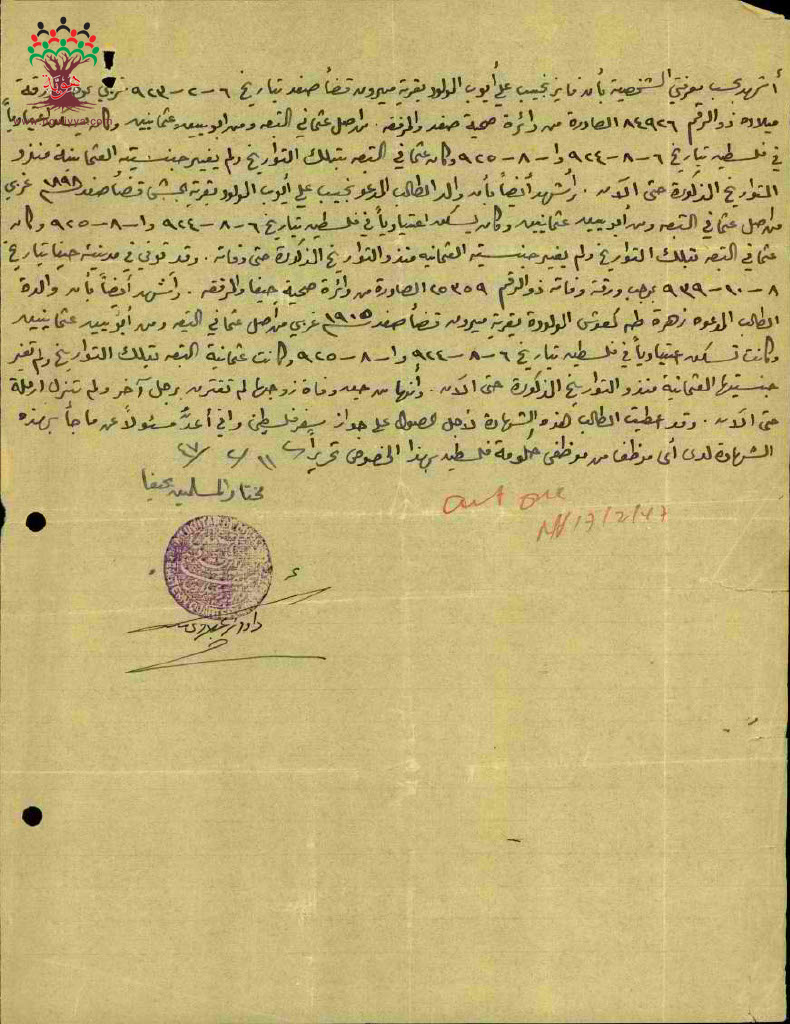 أشهد بحسب معرفتي الشخصية بأن فايز نجيب علي أيوب المولود بقرية ميرون قضأ صفد بتاريخ ٦-٢-٩٢٣ غربي بموجب ورقة
ميلاده ذو الرقم ٨٤٩٢٦ الصادرة من دائرة صحة صفد والمرفقه. من اصل عثماني التبعه ومن ابويين عثمانيين
في فلسطين بتاريخ ٦-٨-٩٢٤ وا-٨-٩٢٥ وكان عثماني التبعه بتلك التواريخ ولم يغيير جنسيته العثمانية منذو
التواريخ المذكورة حتى الآن. وأشهد أيضاً بأن والد الطالب المدعو نجيب علي أيوب المولود بقرية الجش قضأ صفد ١٨٩٨ غربي
من اصل عثماني التبعه ومن أبويين عثمانيين وكان يسكن اعتيادياً في فلسطين بتاريخ ٦-٨-٩٢٤ وا-٨-٩٢٥ وكان
عثماني التبعه بتلك التواريخ ولم يغيير جنسيته العثمانيه منذو التواريخ المذكورة حتى وفاته. وقد توفي في مدينة حيفا بتاريخ
٨-١٠-٩٣٩ بموجب ورقة وفاته ذو الرقم ٢٥٣٥٩ الصادرة من دائرة صحية حيفا والمرفقه. وأشهد أيضاً بأن والدة
الطالب المدعوه زهرة طه المولودة بقرية ميرون قضأ صفد ١٩٠٥ غربي من أصل عثماني التبعه ومن أبويين عثمانيين
وكانت تسكن اعتيادياً في فلسطين بتاريخ ٦-٨-٩٢٤ وا-٨-٩٢٥ وكانت عثمانية التبعه بتلك التواريخ ولم تغير
جنسيتها العثمانية منذو التواريخ المذكورة حتى الآن. وأنها من حين وفاة زوجها لم تقترن برجل آخر ولم تنزل ارملة
حتى الآن. وقد اعطيت الطالب هذه الشهادة لأجل الحصول على جواز سفر فلسطيني واني أعد مسئولاً عن ما جأ بهذه
الشهادة لدى أي موظف من موظفي حكومة فلسطين بهذا الخصوص تحريراً ١١/٢/٤٧
مختار المسلمين بحيفا
17/2/47